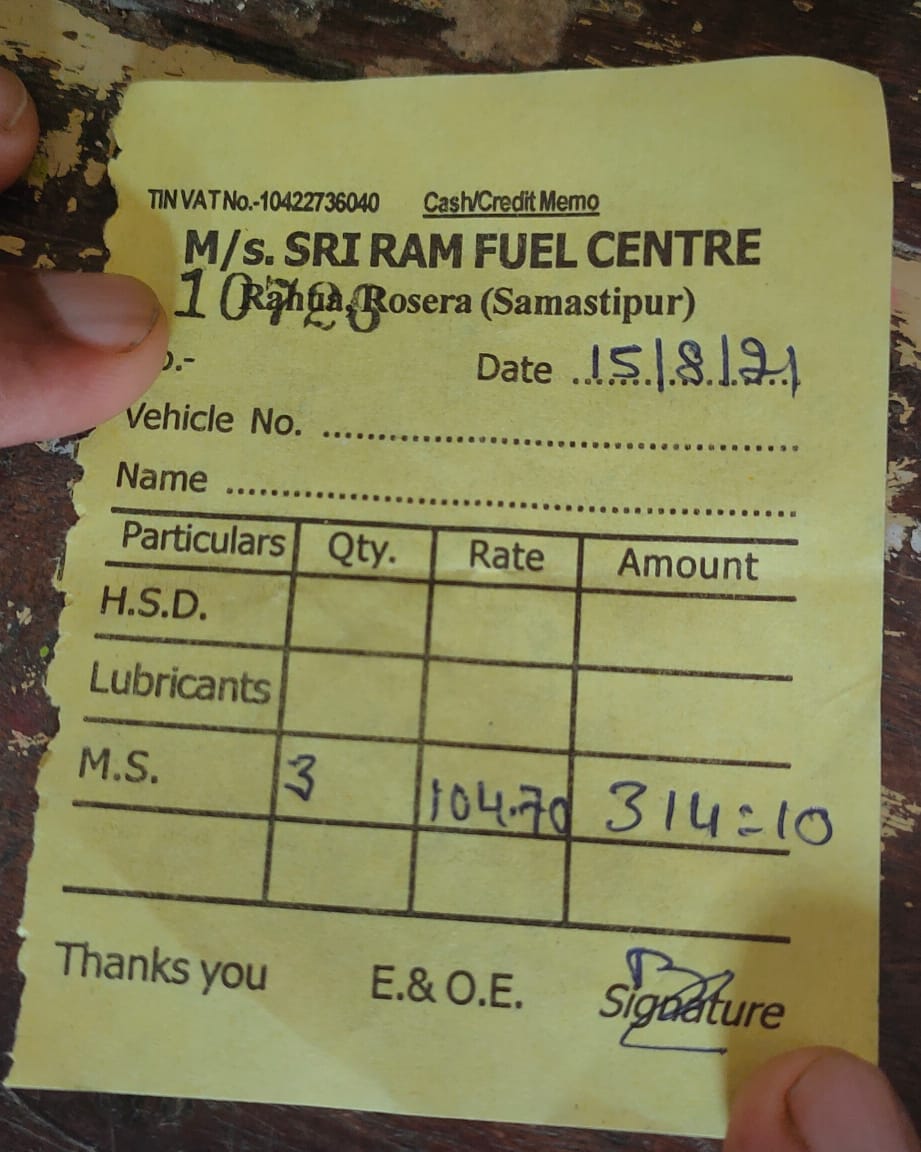 TIN VAT No.-10422736040 Cash/Credit Memo
M/s. SRI RAM FUEL CENTRE
10720
Rahua, Rosera (Samastipur)
Date 15/8/21
Vehicle No.
Name
Particulars Qty. Rate Amount
H.S.D.
Lubricants
M.S. 3 104.70 314=10
Thanks you E.& O.E. Signature